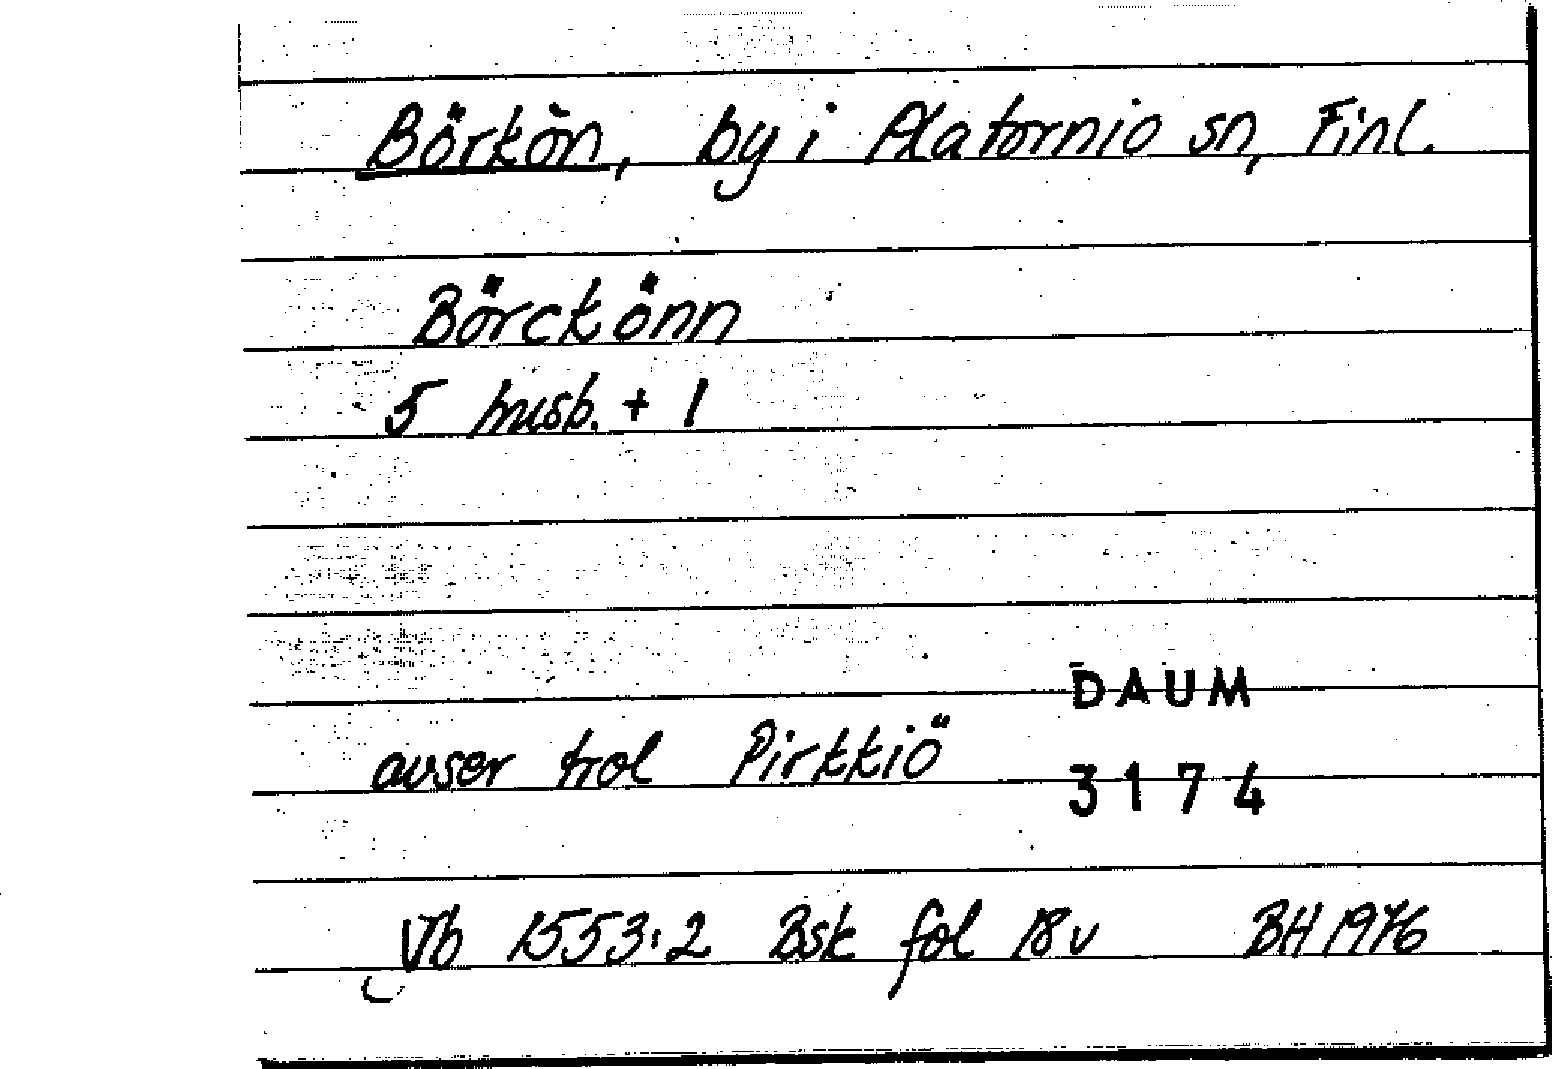 Börkön, by i Alatornio sn, Finl.
Börckönn
5 husb. + 1
DAUM
avser trol Pirkkiö
3174
Vb 1553:2 Bsk fol 18v BH 1976